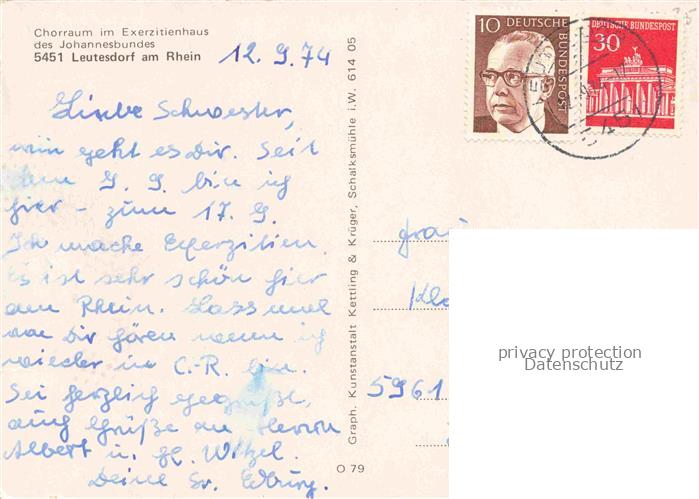 Chorraum im Exerzitienhaus
des Johannesbundes
5451 Leutesdorf am Rhein
12. 9. 74
Liebe Schwester,
wie geht es Dir. Seit
dem 9. 9. bin ich
hier - zum 17. 9.
Ich mache Exerzitien.
Es ist sehr schön hier
am Rhein. Lass mal
von Dir hören wenn ich
wieder in C.-R. bin.
Sei herzlich gegrüßt,
auch Grüße an Herrn
Albert u. Witzel.
Deine Sr. Edburg.
Graph. Kunstanstalt Kettling & Krüger, Schalksmühle i.W. 614 05
O 79
10 DEUTSCHE BUNDESPOST
DEUTSCHE BUNDESPOST
30
Frau
5961
privacy protection
Datenschutz